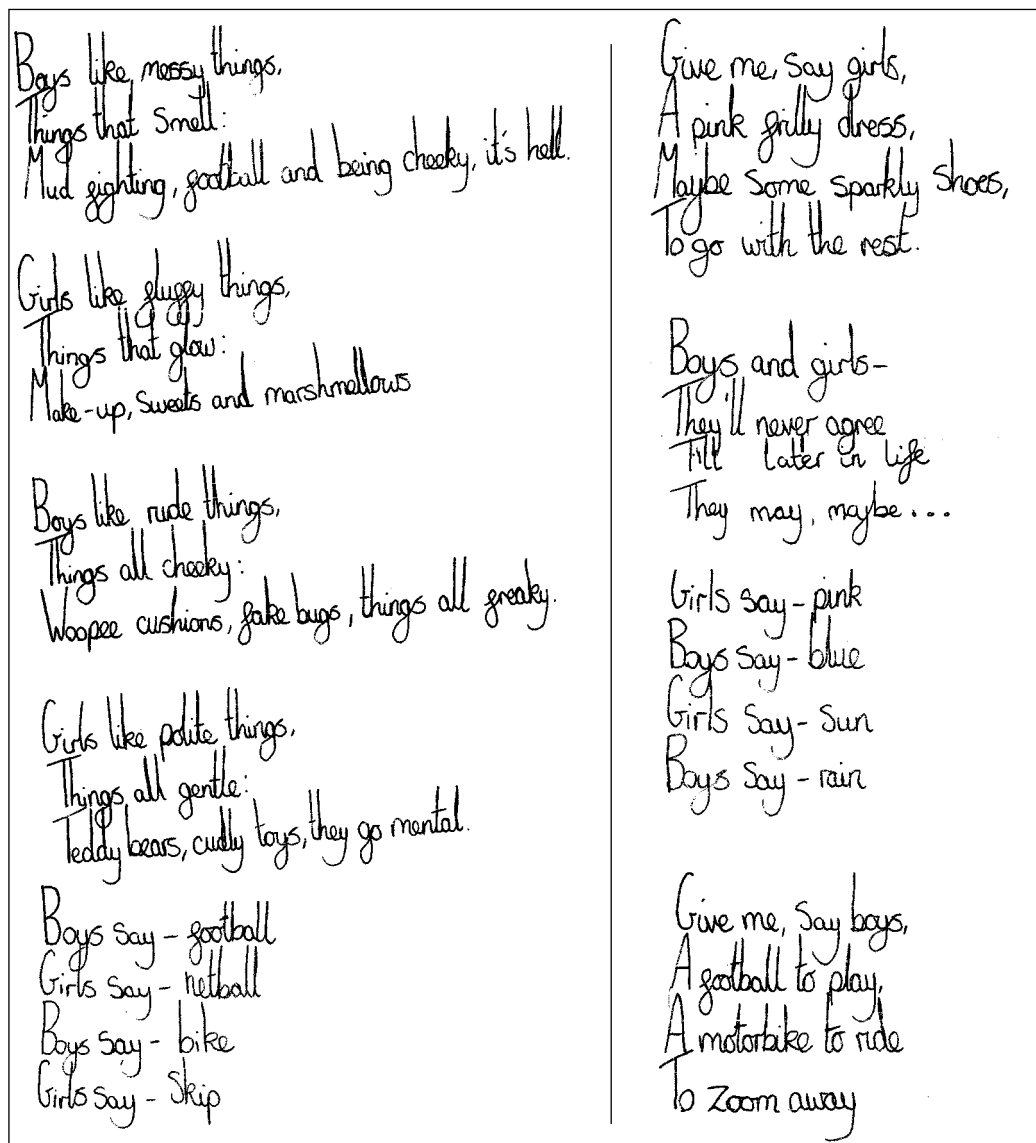 Boys like messy things,
Things that Smell:
Mud fighting, football and being cheeky, it's hell.
Girls like fluffy things,
Things that glow:
Make-up, Sweets and marshmellows
Boys like rude things,
Things all cheeky:
Woopee cushions, fake bugs, things all freaky.
Girls like polite things,
Things all gentle:
Teddy bears, cudly toys, they go mental.
Boys Say – football
Girls Say – netball
Boys Say – bike
Girls Say – Skip
Give me, Say girls,
A pink frilly dress,
Maybe Some sparkly Shoes,
To go with the rest.
Boys and girls–
They'll never agree
Till Later in life
They may, maybe...
Girls Say – pink
Boys Say – blue
Girls Say – Sun
Boys Say – rain
Give me, Say boys,
A football to play,
A motorbike to ride
To Zoom away